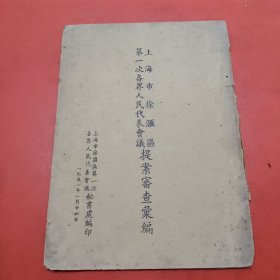 上海市徐滙區
第一次各界人民代表會議
提案審查彙編
上海市徐滙區第一次
各界人民代表會議秘書處編印
一九五一年一月廿四日